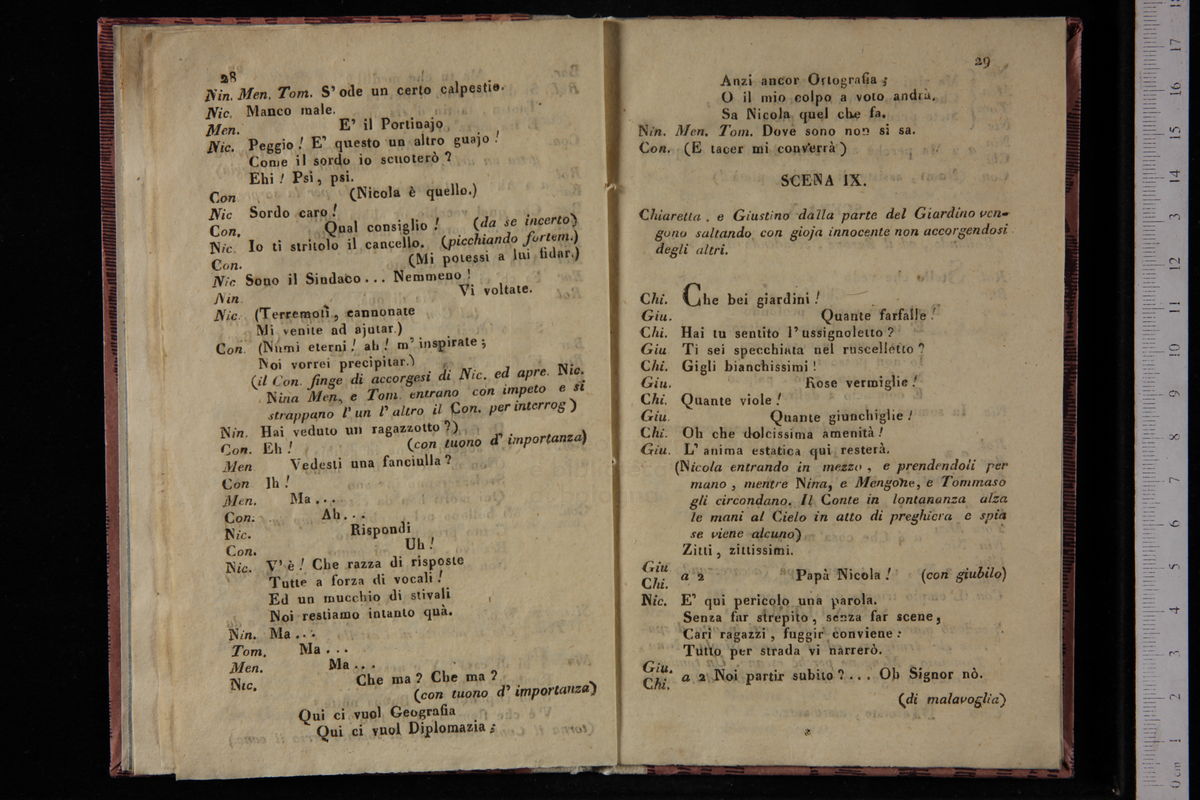 28
Nin. Men. Tom. S' ode un certo calpestio.
Nic. Manco male.
Men. E' il Portinajo
Nic. Peggio! E' questo un altro guajo!
Come il sordo io scuoterò?
Ehi! Psi, psi.
Con (Nicola è quello.)
Nic Sordo caro!
Con. Qual consiglio! (da se incerto)
Nic. Io ti stritolo il cancello. (picchiando fortem.)
Con. (Mi potessi a lui fidar.)
Nic Sono il Sindaco... Nemmeno!
Nin Vi voltate.
Nic. (Terremoti, cannonate
Mi venite ad ajutar.)
Con. (Numi eterni! ah! m' inspirate;
Noi vorrei precipitar.)
(il Con. finge di accorgesi di Nic. ed apre. Nic.
Nina Men., e Tom. entrano con impeto e si
strappano l' un l' altro il Con. per interrog)
Nin. Hai veduto un ragazzotto?)
Con. Eh! (con tuono d' importanza)
Men Vedesti una fanciulla?
Con Ih!
Men. Ma...
Con. Ah...
Nic. Rispondi
Con. Uh!
Nic. V' è! Che razza di risposte
Tutte a forza di vocali!
Ed un mucchio di stivali
Noi restiamo intanto quà.
Nin. Ma...
Tom. Ma...
Men. Ma...
Nic. Che ma? Che ma?
(con tuono d' importanza)
Qui ci vuol Geografia
Qui ci vuol Diplomazia;
29
Anzi ancor Ortografia;
O il mio colpo a voto andrà.
Sa Nicola quel che fa.
Nin. Men. Tom. Dove sono non si sa.
Con. (E tacer mi converrà)
SCENA IX.
Chiaretta, e Giustino dalla parte del Giardino ven-
gono saltando con gioja innocente non accorgendosi
degli altri.
Chi. Che bei giardini!
Giu. Quante farfalle!
Chi. Hai tu sentito l' ussignoletto?
Giu Ti sei specchiata nel ruscelletto?
Chi. Gigli bianchissimi!
Giu. Rose vermiglie!
Chi. Quante viole!
Giu. Quante giunchiglie!
Chi. Oh che dolcissima amenità!
Giu. L' anima estatica qui resterà.
(Nicola entrando in mezzo, e prendendoli per
mano, mentre Nina, e Mengone, e Tommaso
gli circondano. Il Conte in lontananza alza
le mani al Cielo in atto di preghiera e spia
se viene alcuno)
Zitti, zittissimi.
Giu
Chi. a 2 Papà Nicola! (con giubilo)
Nic. E' qui pericolo una parola.
Senza far strepito, senza far scene,
Cari ragazzi, fuggir conviene:
Tutto per strada vi narrerò.
Giu.
Chi. a 2 Noi partir subito?... Oh Signor nò.
(di malavoglia)